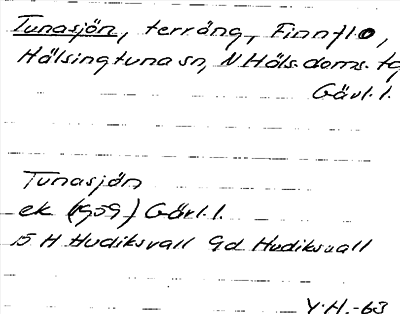 Tunasjön, terräng, Finnfl.o,
Hälsingtuna sn, N Häls. doms. tg
Gävl. l.
Tunasjön
ek (1959) Gävl. l.
15 H Hudiksvall 9d Hudiksvall
Y.H.-63